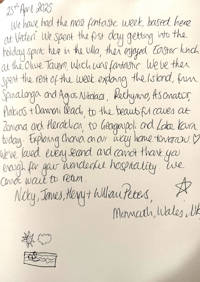 25th April 2025
We have had the most fantastic week, based here
at Villeri. We spent the first day getting into the
holiday spirit here in the villa, then enjoyed Easter lunch
at the Olive Tavern, which was fantastic. We've then
spent the rest of the week exploring the Island, from
Spinalonga and Agios Nikolaos, Rethymno, Asomatos,
Plakias & Damnoni Beach, to the beautiful caves at
Zoniana and Heraklion, to Georgioupoli and Lake Kourna
today. Exploring Chania on our way home tomorrow ♡
We've loved every second and cannot thank you
enough for your wonderful hospitality. We
cannot wait to return.
Nicky, James, Henry + William Peters,
Monmouth, Wales, UK